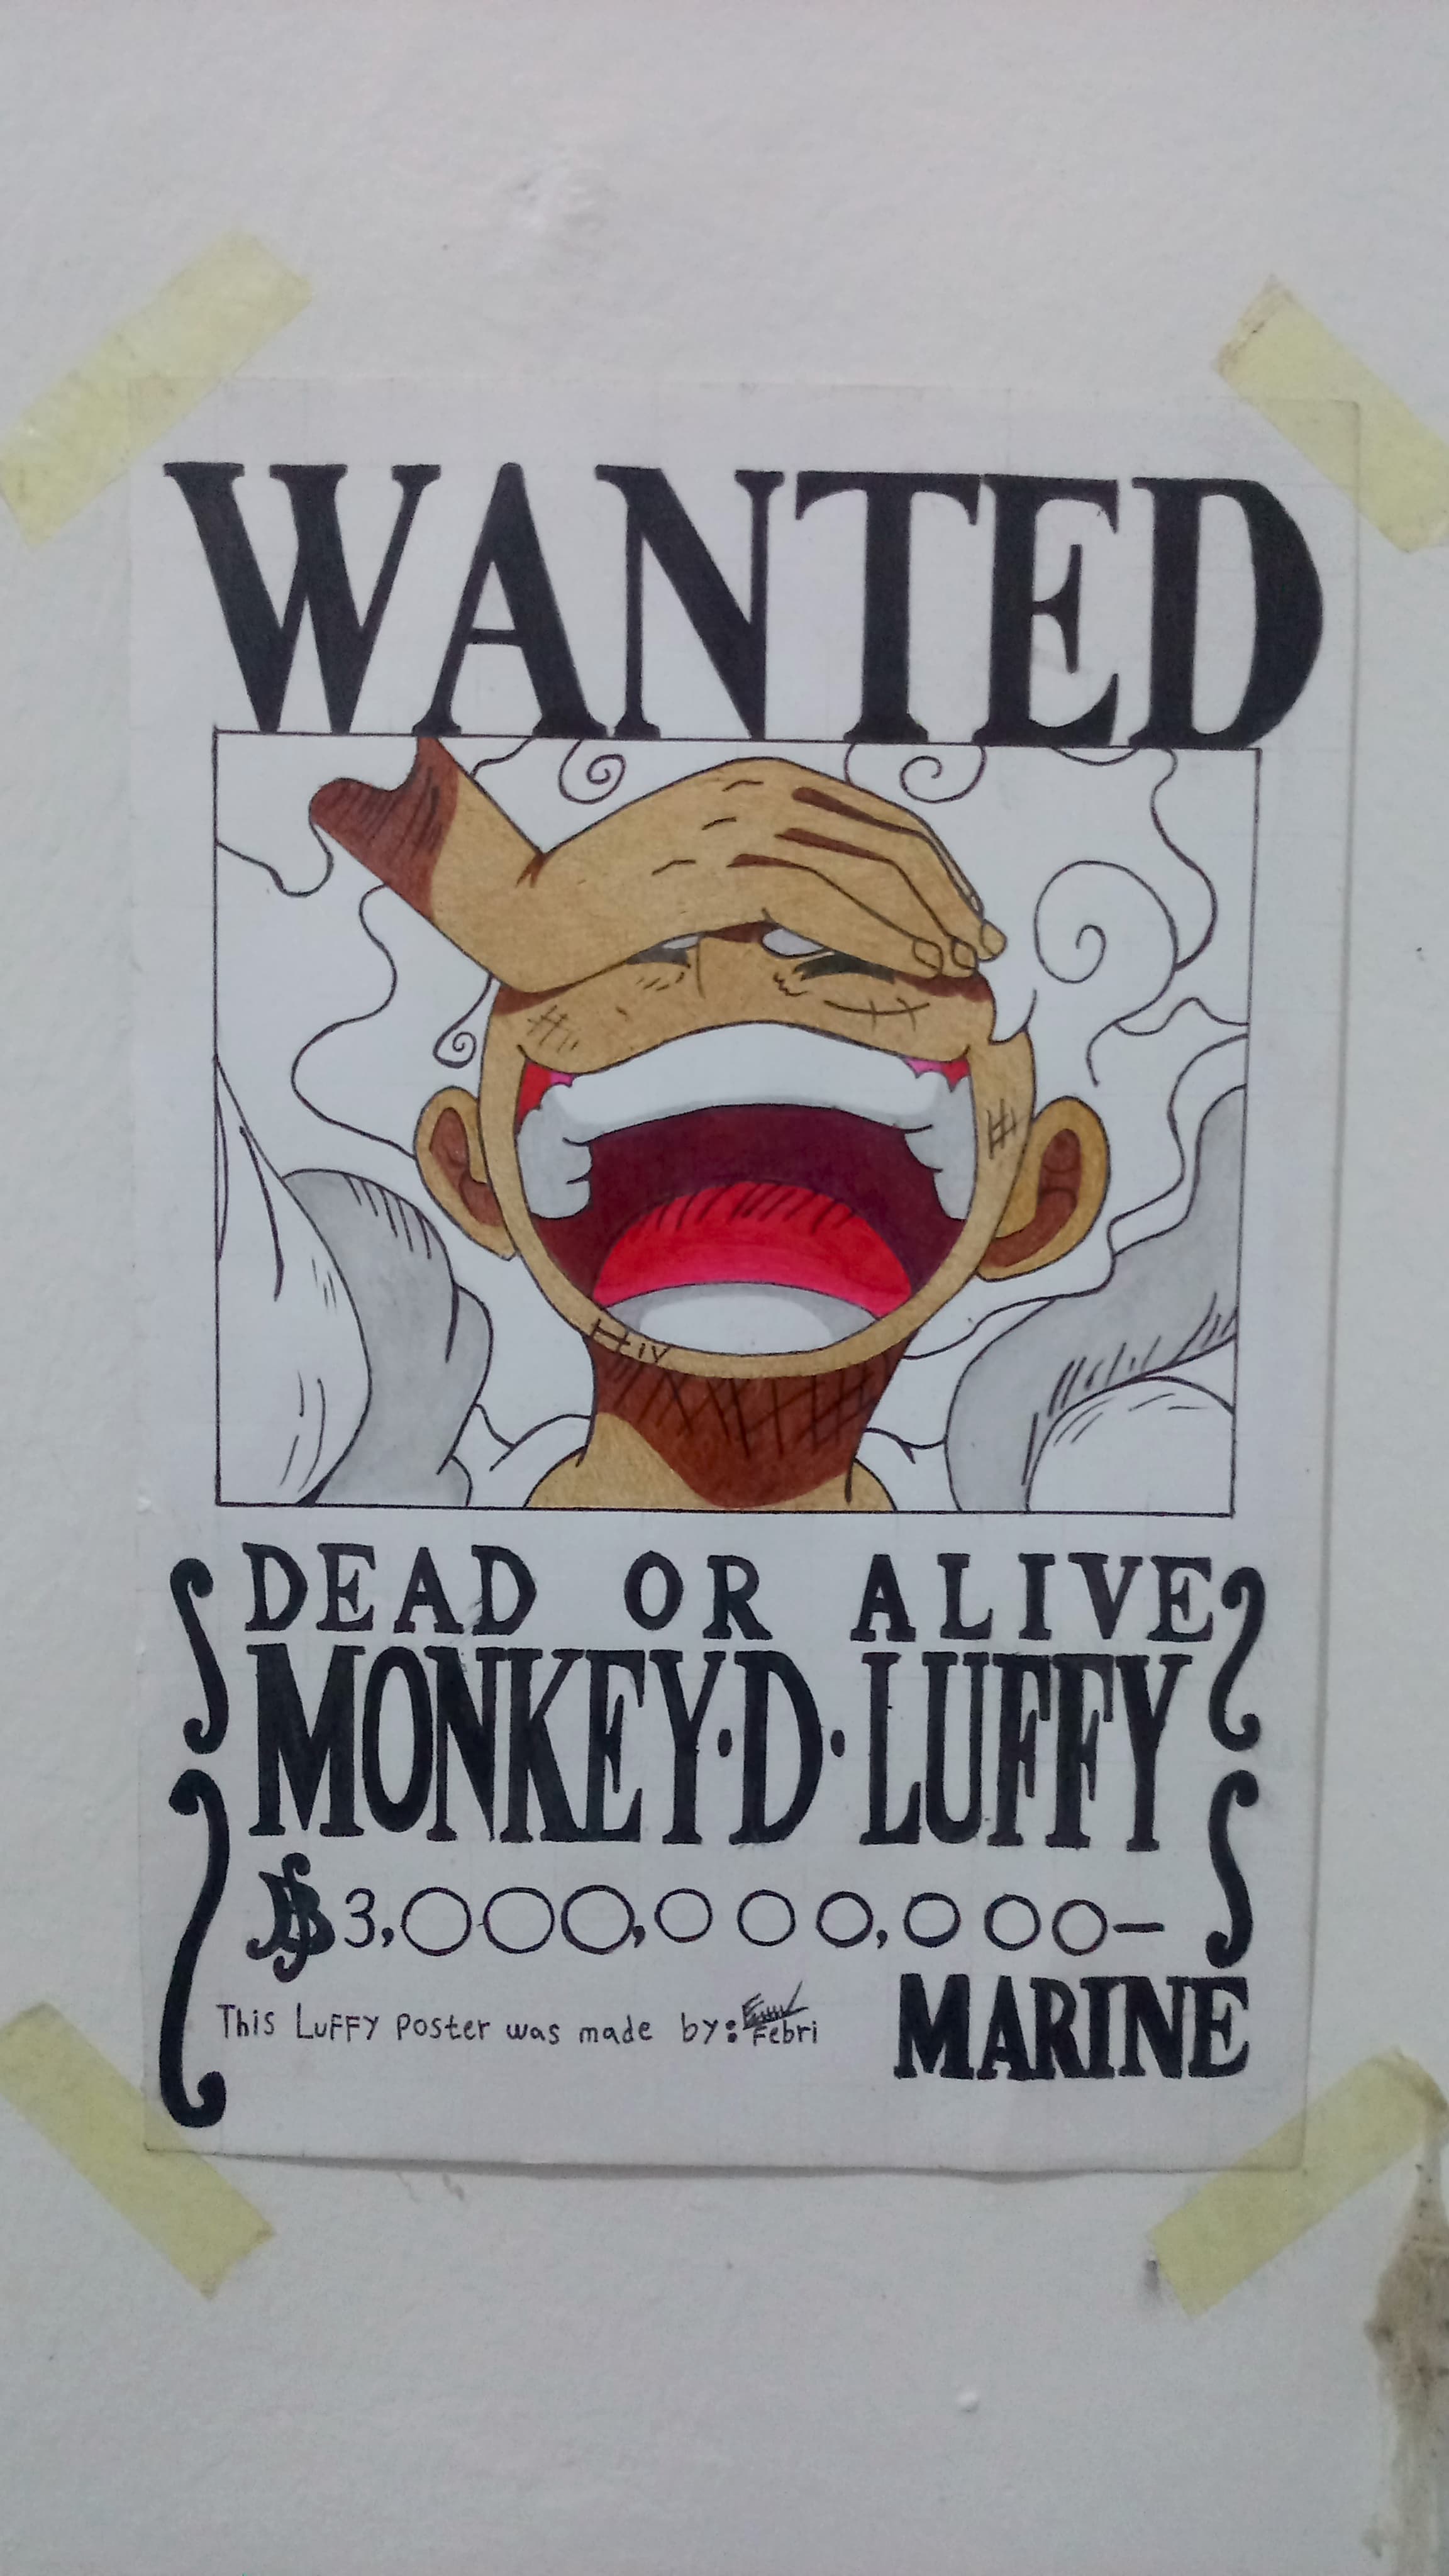 WANTED
DEAD OR ALIVE
MONKEY·D·LUFFY
฿3,000,000,000-
This LUFFY Poster was made by: Febri
MARINE